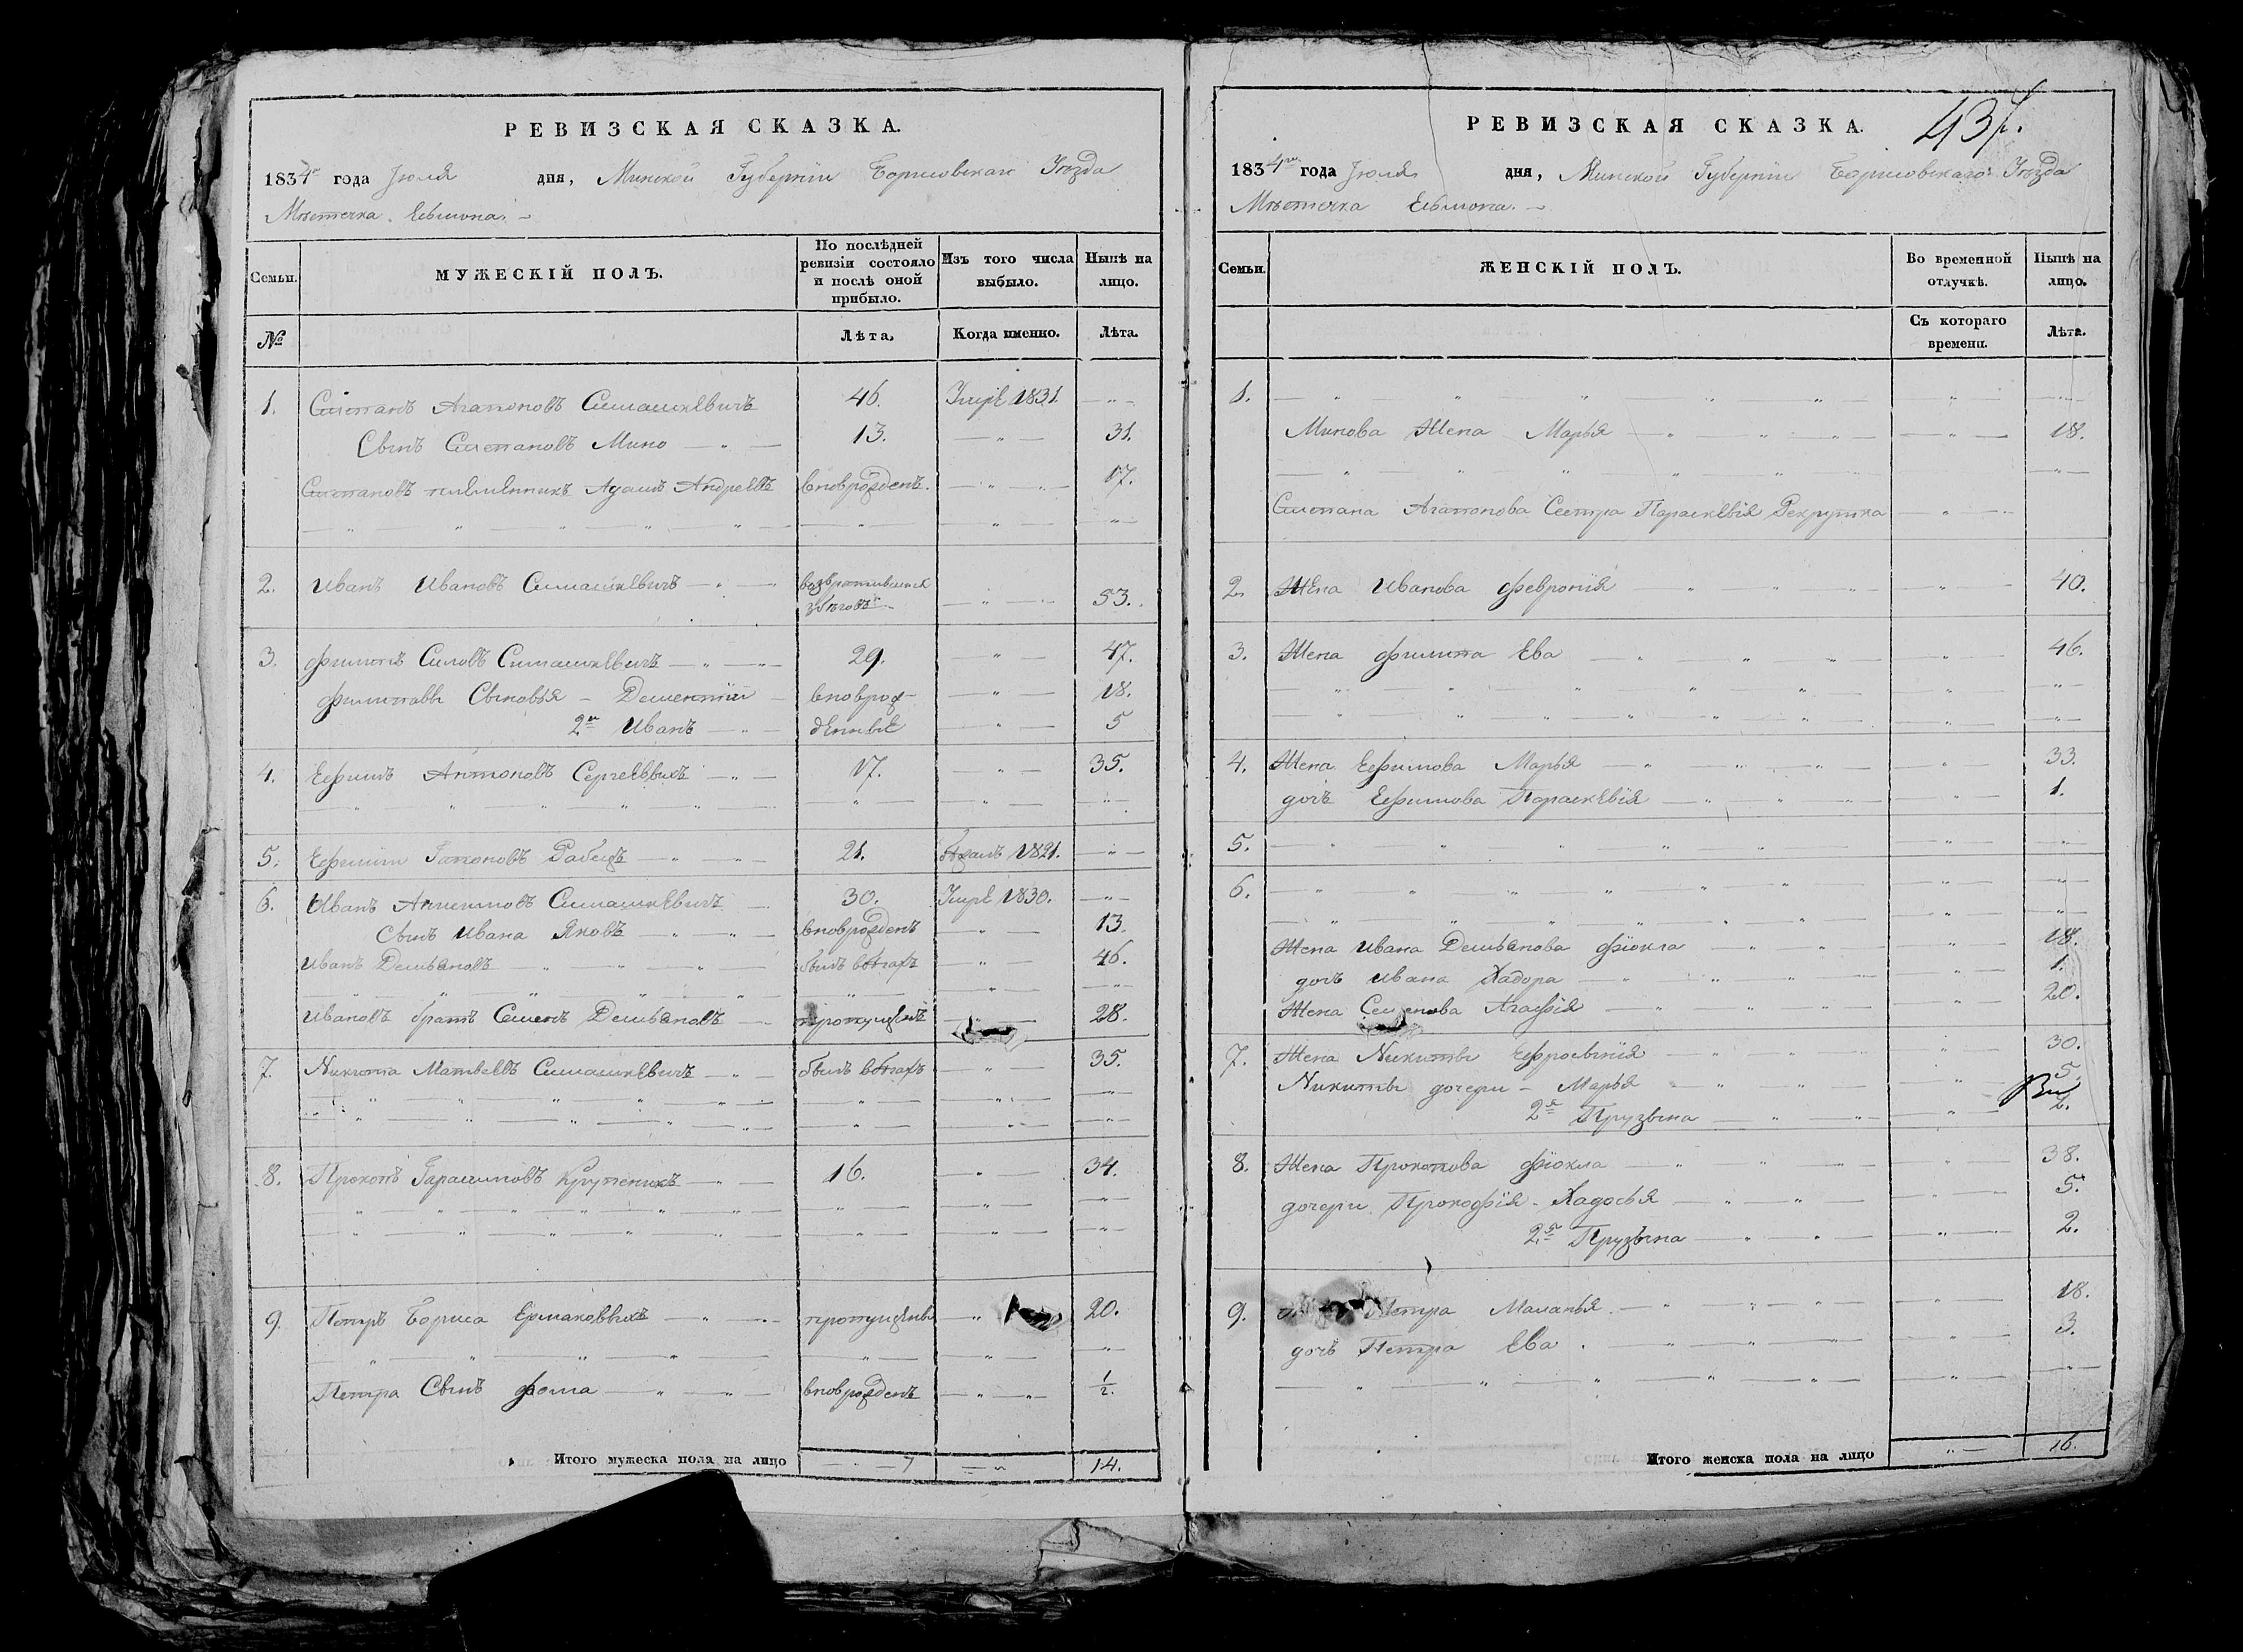 РЕВИЗСКАЯ СКАЗКА.
1834го года Июля дня, Минской Губерніи Борисовскаго Уѣзда
Мѣстечка
Семьи.
МУЖЕСКІЙ ПОЛЪ.
По послѣдней ревизіи состояло и послѣ оной прибыло.
Изъ того числа выбыло.
Нынѣ на лицо.
№
Лѣта.
Когда именно.
Лѣта.
1. Степанъ Агапоновъ Симашкевичъ 46. Умре 1831. — " —
Сынъ Степановъ Мино — " — 13. — " — 31.
Степановъ племянникъ Адамъ Андреевъ вновьрожденъ. — " — 17.
2. Иванъ Ивановъ Симашкевичъ — " — возвратившійся
збѣговъ — " — 53.
3. Филипъ Силовъ Симашкевичъ — " — 29. — " — 47.
Филиповы Сыновья — Дементій вноврож- — " — 18.
2й Иванъ — " — денные — " — 5
4. Ефимъ Антоновъ Сергеевыхъ — " — 17. — " — 35.
5. Ефимъ Гапоновъ — " — 21. 1821. — " —
6. Иванъ Симашкевичъ — 30. Умре 1830. — " —
Сынъ Ивана Яковъ — " — вноврожденъ — " — 13.
Иванъ Демьяновъ — " — былъ вбѣгахъ — " — 46.
Ивановъ братъ Семенъ Демьяновъ — пропущенъ — 28.
7. Никита Матвеевъ Симашкевичъ — " — былъ вбѣгахъ — " — 35.
8. Прокопъ Гарасимовъ — " — 16. — " — 34.
9. Петръ Бориса Ермаковыхъ — " — пропущены — " — 20.
Петра Сынъ Фома — " — вноврожденъ — " — 1/2.
Итого мужеска пола на лицо — " — — " — 14.
РЕВИЗСКАЯ СКАЗКА.
1834го года Июля дня, Минской Губерніи Борисовскаго Уѣзда
Мѣстечка
Семьи.
ЖЕНСКІЙ ПОЛЪ.
Во временной отлучкѣ.
Нынѣ на лицо.
Съ котораго времени.
Лѣта.
1. — " —
Минова Жена Марья — " — 18.
Степана Агапонова Сестра Параскевія Рекрутка — " —
2. Жена Иванова Февронія — " — 40.
3. Жена Филипа Ева — " — 46.
4. Жена Ефимова Марья — " — 33.
дочь Ефимова Параскевія — " — 1.
5. — " —
6. — " —
Жена Ивана Демьянова Фіокла — " — 18.
дочь Ивана Хадора — " — 1.
Жена Семенова Агафія — " — 20.
7. Жена Никиты Ефросынія — " — 30.
Никиты дочери — Марья — " — 5.
2я Прузына — " — 2.
8. Жена Прокопова Фіокла — " — 38.
дочери Прокофія. Хадосья — " — 5.
2я Прузына — " — 2.
9. Петра Маланья. — " — 18.
дочь Петра Ева. — " — 3.
Итого женска пола на лицо — " — 16.